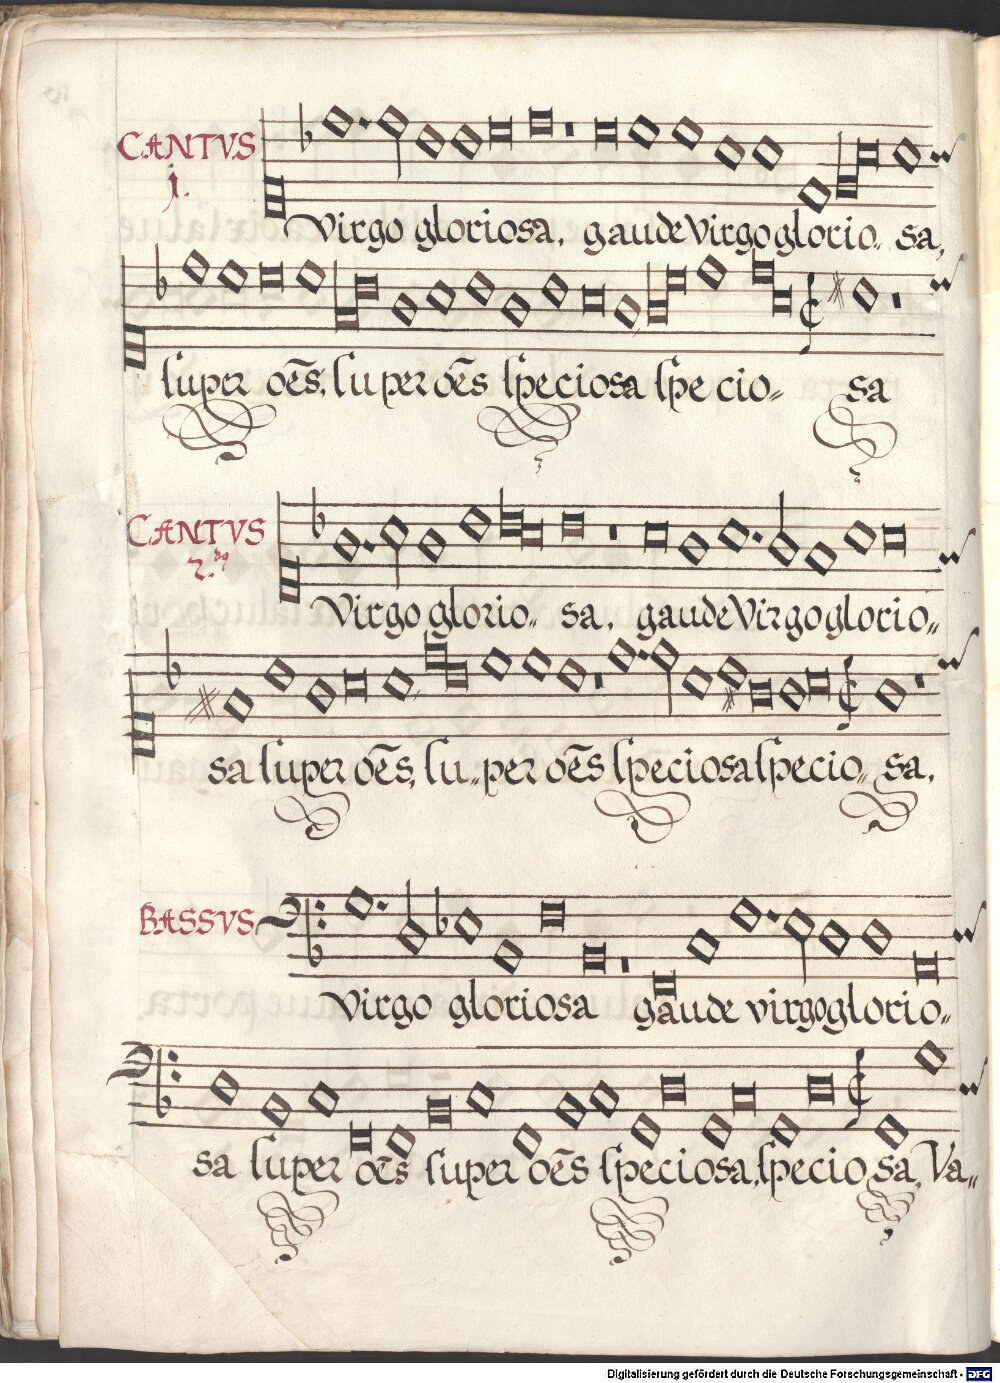 CANTVS
j.
Virgo gloriosa, gaude Virgo glorio„ sa,
super oēs, super oēs speciosa spe cio„ sa
CANTVS
2.
Virgo glorio„ sa, gaude Virgo glorio„
sa super oēs, su„ per oēs speciosa specio„ sa,
BASSVS
Virgo gloriosa gaude virgo glorio„
sa super oēs super oēs speciosa, specio sa, Va„
Digitalisierung gefördert durch die Deutsche Forschungsgemeinschaft - DFG